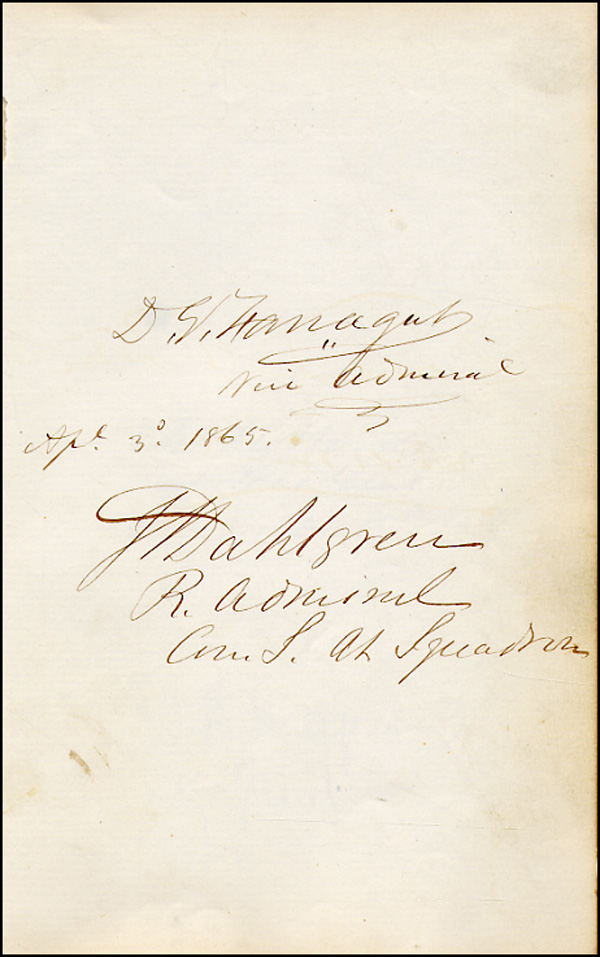 D. G. Farragut
Vice Admiral
Apl. 3d. 1865.
J Dahlgren
R. Admiral
Com. S. At Squadron